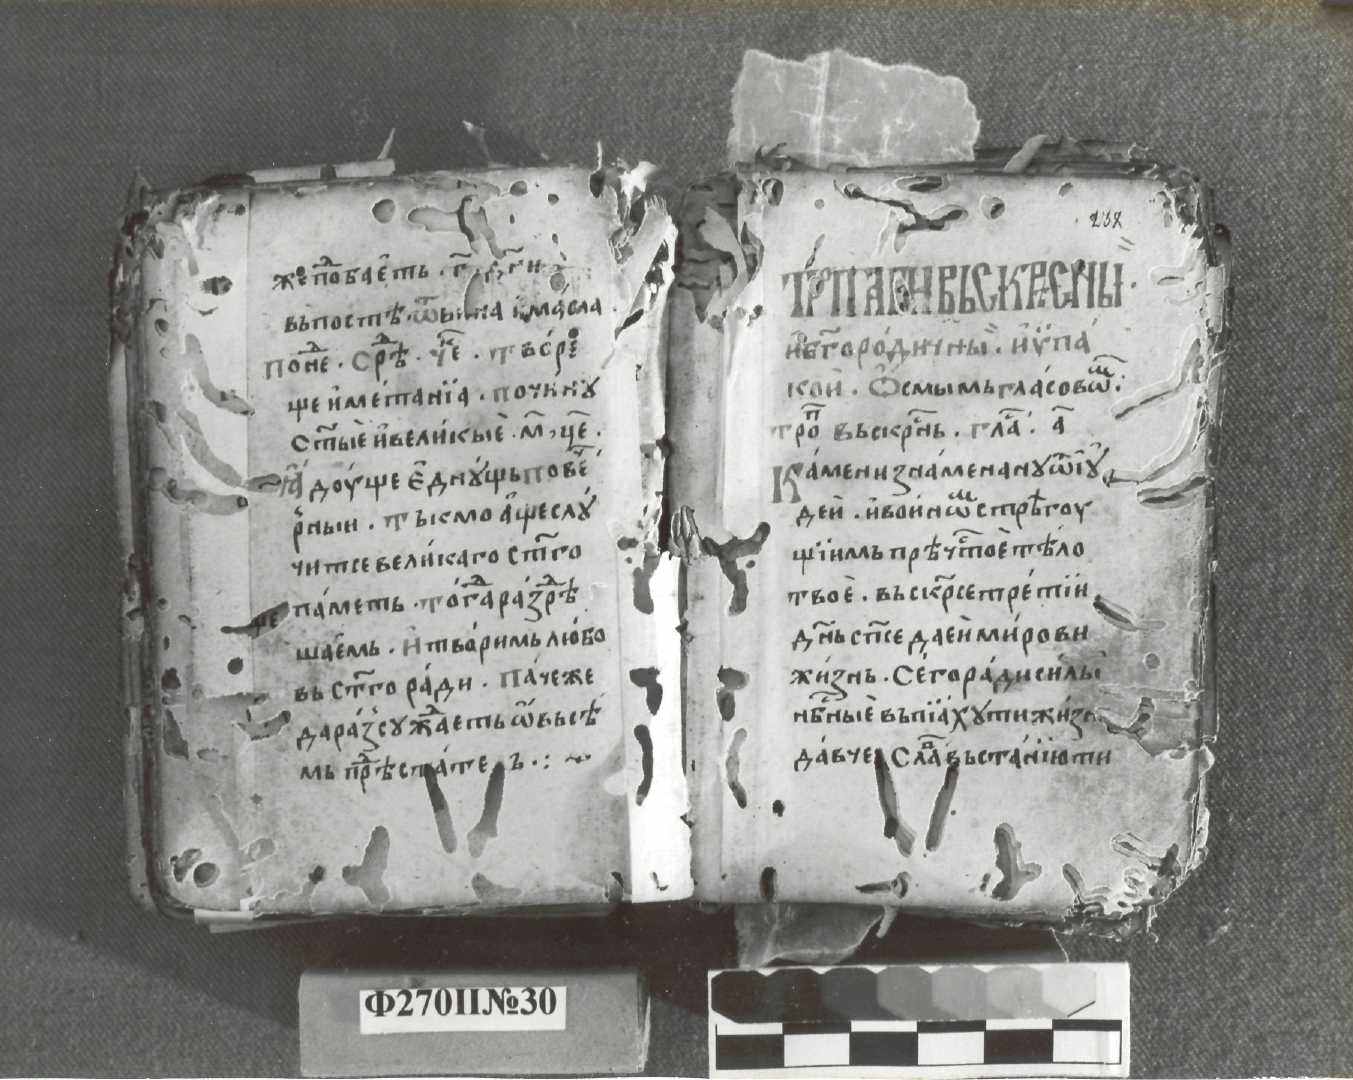 же пⷪ҇баѐть
въ постѣ · ѿ вина и масла
поⷩ҇е · срⷣѣ · чⷦ҇е · тъ срⷣе
ще и метанїа · почнꙋ
стⷯые̏ и великые̏ · м҃ · це҃ ·
доуще е҆днꙋщь повеⷱ҇
рныи · тькмо аще слꙋ
читсе великаго стг҃о
паметь · тогⷣа раꙁⷣрѣ
шаемь · и творимь любо
вь стг҃о ради · паче же
да раꙁсꙋжⷣаеть ѿ въсѣ
мь прⷣѣстате ъ · : ~
232
ТРⷪ҇ПАРИ ВЬСКРⷭ҇СНЫ ·
и бг҃ородичны̏ · и ѵ҆па
кои̏ · ѻсмымь гласовѡⷨ :
троⷫ҇ вьскрⷭ҇нь · глаⷭ҇ · а҃
Камени знаменанꙋ ѿ іꙋ
деи̏ · и вои̏нѡⷨ стрѣгоу
щїимь прѣчⷭ҇тое̏ тѣло
твое̏ · вьскрⷭ҇се третїи
дн҃ь сп҃се даеи̏ мирови
жиꙁнь · Сего ради силы
нбⷭ҇ные̏ вьпїахꙋ ти жиꙁн
давче Слаⷡ҇ вьстанїю ти
Ф270II№30